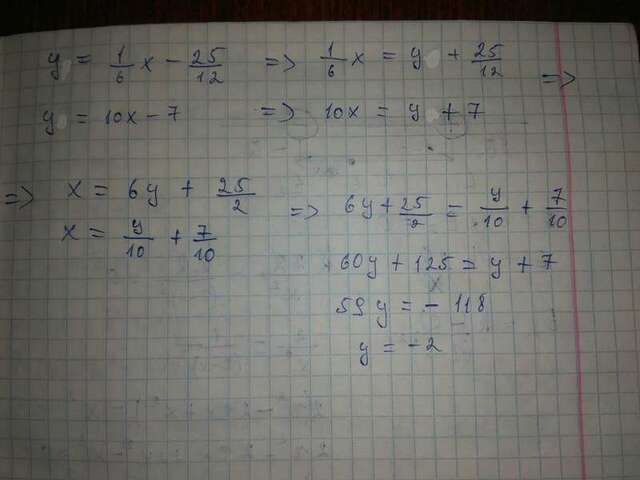 y = 1/6 x - 25/12 => 1/6 x = y + 25/12 =>
y = 10x - 7 => 10x = y + 7
=> x = 6y + 25/2 => 6y + 25/2 = y/10 + 7/10
x = y/10 + 7/10
60y + 125 = y + 7
59y = - 118
y = -2